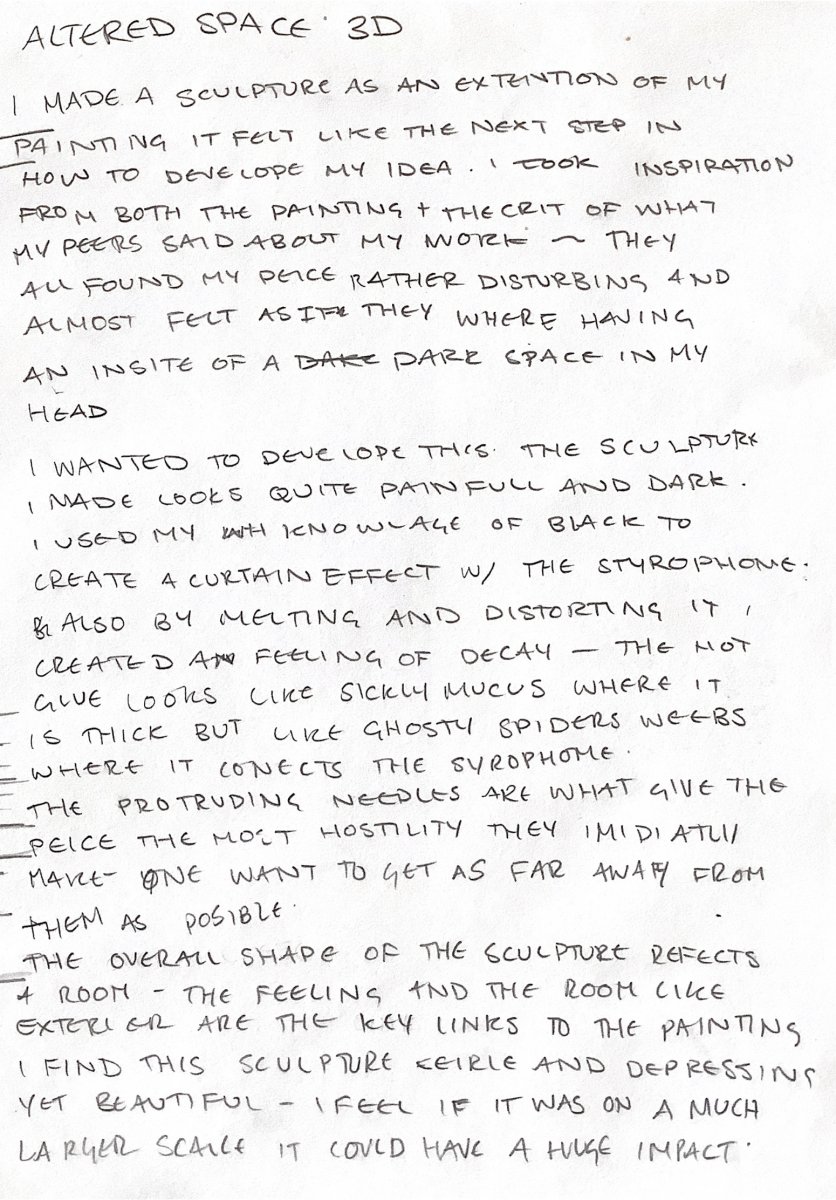 ALTERED SPACE · 3D
I MADE A SCULPTURE AS AN EXTENTION OF MY
PAINTING IT FELT LIKE THE NEXT STEP IN
HOW TO DEVELOPE MY IDEA. I TOOK INSPIRATION
FROM BOTH THE PAINTING + THE CRIT OF WHAT
MY PEERS SAID ABOUT MY WORK ~ THEY
ALL FOUND MY PEICE RATHER DISTURBING AND
ALMOST FELT AS IF THEY WHERE HAVING
AN INSITE OF A DARK SPACE IN MY
HEAD
I WANTED TO DEVELOPE THIS. THE SCULPTURE
I MADE LOOKS QUITE PAINFULL AND DARK.
I USED MY KNOWLAGE OF BLACK TO
CREATE A CURTAIN EFFECT W/ THE STYROPHONE.
& ALSO BY MELTING AND DISTORTING IT I
CREATED A FEELING OF DECAY — THE HOT
GLUE LOOKS LIKE SICKLY MUCUS WHERE IT
IS THICK BUT LIKE GHOSTY SPIDERS WEEBS
WHERE IT CONECTS THE SYROPHOME.
THE PROTRUDING NEEDLES ARE WHAT GIVE THE
PEICE THE MOST HOSTILITY THEY IMIDIATLY
MAKE ONE WANT TO GET AS FAR AWAY FROM
THEM AS POSIBLE.
THE OVERALL SHAPE OF THE SCULPTURE REFECTS
A ROOM - THE FEELING AND THE ROOM LIKE
EXTERIER ARE THE KEY LINKS TO THE PAINTING
I FIND THIS SCULPTURE EEIRIE AND DEPRESSING
YET BEAUTIFUL - I FEEL IF IT WAS ON A MUCH
LARGER SCALE IT COULD HAVE A HUGE IMPACT.